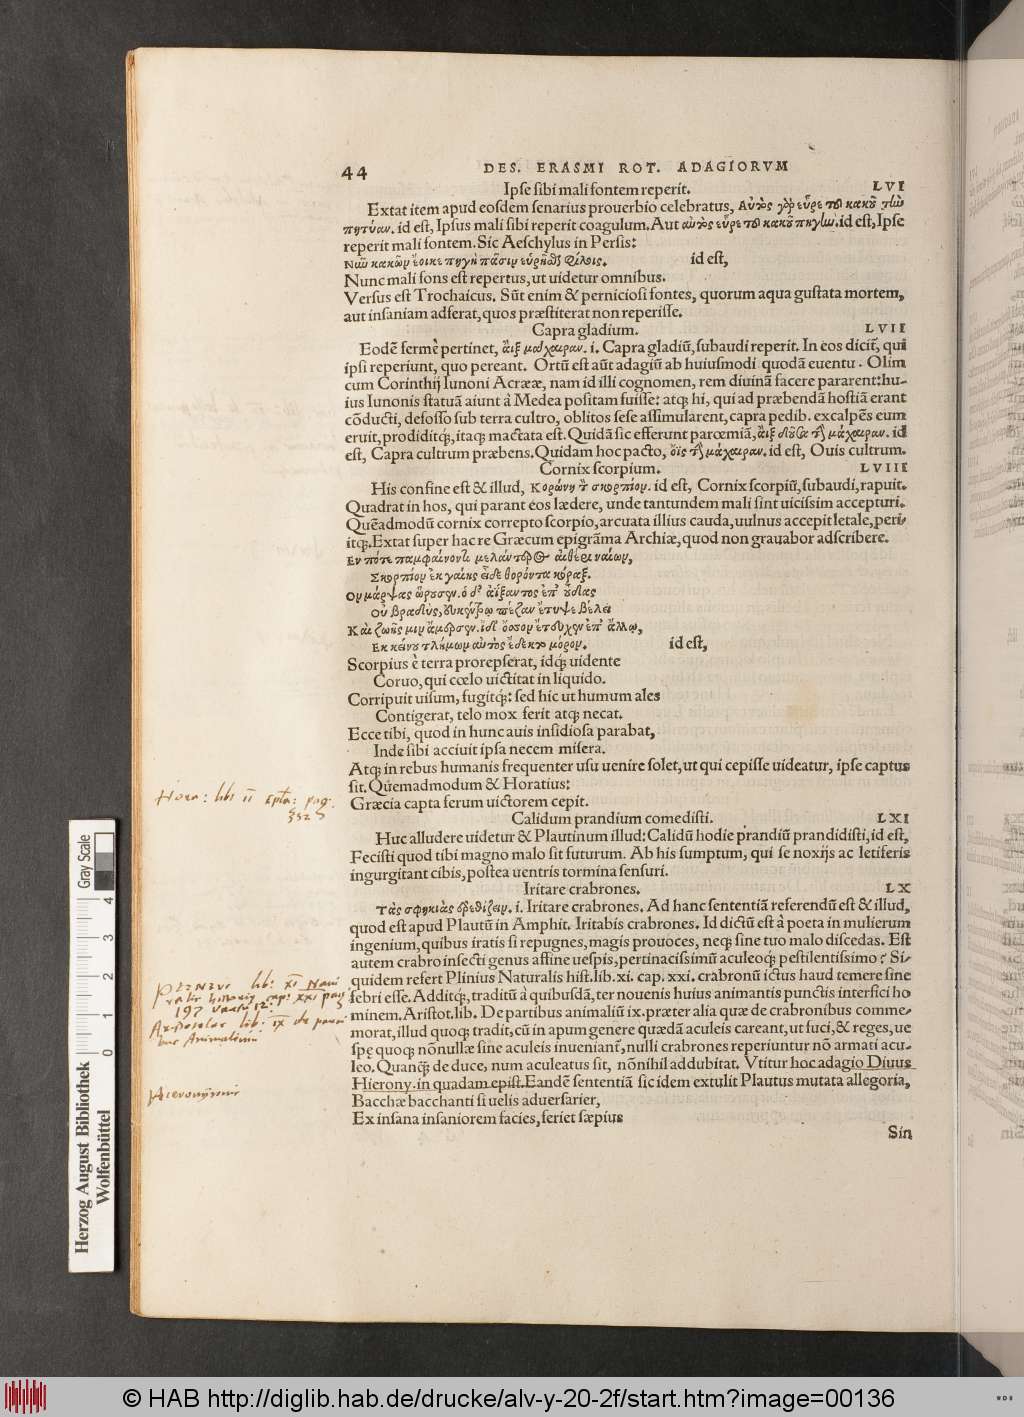 44 DES. ERASMI ROT. ADAGIORVM
Ipse sibi mali fontem reperit. LVI
Extat item apud eosdem senarius prouerbio celebratus, Αὐτὸς γὰρ εὗρε τοῦ κακοῦ τὴν
πητύαν. id est, Ipsus mali sibi reperit coagulum. Aut αὐτὸς εὗρε τοῦ κακοῦ πηγὴν. id est, Ipse
reperit mali fontem. Sic Aeschylus in Persis:
Νῦν κακῶν ἔοικε πηγὴ πᾶσιν εὑρῆσθαι φίλοις. id est,
Nunc mali fons est repertus, ut uidetur omnibus.
Versus est Trochaicus. Sũt enim & perniciosi fontes, quorum aqua gustata mortem,
aut insaniam adferat, quos præstiterat non reperisse.
Capra gladium. LVII
Eodẽ fermè pertinet, ἂιξ μάχαιραν. i. Capra gladiũ, subaudi reperit. In eos dicit̃, qui
ipsi reperiunt, quo pereant. Ortũ est aũt adagiũ ab huiusmodi quodã euentu. Olim
cum Corinthij Iunoni Acrææ, nam id illi cognomen, rem diuinã facere pararent: hu-
ius Iunonis statuã aiunt à Medea positam fuisse: atq; hi, qui ad præbendã hostiã erant
cõducti, defosso sub terra cultro, oblitos sese assimularent, capra pedib. excalpẽs eum
eruit, prodiditq́;, itaq; mactata est. Quidã sic efferunt parœmiã, ἂιξ δοῦσα τὴν μάχαιραν. id
est, Capra cultrum præbens. Quidam hoc pacto, ὄϊς τὴν μάχαιραν. id est, Ouis cultrum.
Cornix scorpium. LVIII
His confine est & illud, Κορώνη τὸν σκορπίον. id est, Cornix scorpiũ, subaudi, rapuit.
Quadrat in hos, qui parant eos lædere, unde tantundem mali sint uicissim accepturi.
Quẽadmodũ cornix correpto scorpio, arcuata illius cauda, uulnus accepit letale, peri-
itq́;. Extat super hac re Græcum epigrãma Archiæ, quod non grauabor adscribere.
Ἐν πότε παμφαίνοντι μελάντερος αἰθέρι ναίων,
Σκορπίον ἐκ γαίης εἶδε θορόντα κόραξ.
Ὃν μάρψας ὤρουσεν. ὁ δ᾽ ἀΐξαντος ἐπ᾽ οὖδας
Οὐ βραδὺς, εὐκέντρῳ πέζαν ἔτυψε βέλει
Καὶ ζωῆς μιν ἄμερσεν. ἴδ᾽ ὃσσον ἔτευχεν ἐπ᾽ ἄλλῳ,
Ἐκ κείνου τλήμων αὐτὸς ἔδεκτο μόρον. id est,
Scorpius è terra prorepserat, idq́; uidente
Coruo, qui cœlo uictitat in liquido.
Corripuit uisum, fugitq́;: sed hic ut humum ales
Contigerat, telo mox ferit atq; necat.
Ecce tibi, quod in hunc auis insidiosa parabat,
Inde sibi acciuit ipsa necem misera.
Atq; in rebus humanis frequenter usu uenire solet, ut qui cepisse uideatur, ipse captus
sit. Quemadmodum & Horatius:
Græcia capta ferum uictorem cepit.
Hora: lib: II Epta: pag.
332
Calidum prandium comedisti. LXI
Huc alludere uidetur & Plautinum illud: Calidũ hodie prandiũ prandidisti, id est,
Fecisti quod tibi magno malo sit futurum. Ab his sumptum, qui se noxijs ac letiferis
ingurgitant cibis, postea uentris tormina sensuri.
Iritare crabrones. LX
Τὰς σφηκιὰς ἐρεθίζειν. i. Iritare crabrones. Ad hanc sententiã referendũ est & illud,
quod est apud Plautũ in Amphit. Iritabis crabrones. Id dictũ est à poeta in mulierum
ingenium, quibus iratis si repugnes, magis prouoces, neq; sine tuo malo discedas. Est
autem crabro insecti genus affine uespis, pertinacissimũ aculeoq; pestilentissimo: Si-
quidem refert Plinius Naturalis hist. lib. xi. cap. xxi. crabronũ ictus haud temere sine
febri esse. Additq́;, traditũ à quibusdã, ter nouenis huius animantis punctis interfici ho
minem. Aristot. lib. De partibus animaliũ ix. præter alia quæ de crabronibus comme-
morat, illud quoq; tradit, cũ in apum genere quædã aculeis careant, ut fuci, & reges, ue
spę quoq; nõnullæ sine aculeis inueniant̃, nulli crabrones reperiuntur nõ armati acu-
leo. Quanq́; de duce, num aculeatus sit, nõnihil addubitat. Vtitur hoc adagio Diuus
Hierony. in quadam epist. Eandẽ sententiã sic idem extulit Plautus mutata allegoria,
Bacchæ bacchanti si uelis aduersarier,
Ex insana insaniorem facies, feriet sæpius
Sin
PLINIVS lib: XI Natu
ralis historiæ cap: XXI pag
197
Aristoteles lib: IX de parti
bus Animalium
Hieronÿmi
Gray Scale
0 1 2 3 4
Herzog August Bibliothek
Wolfenbüttel
© HAB http://diglib.hab.de/drucke/alv-y-20-2f/start.htm?image=00136